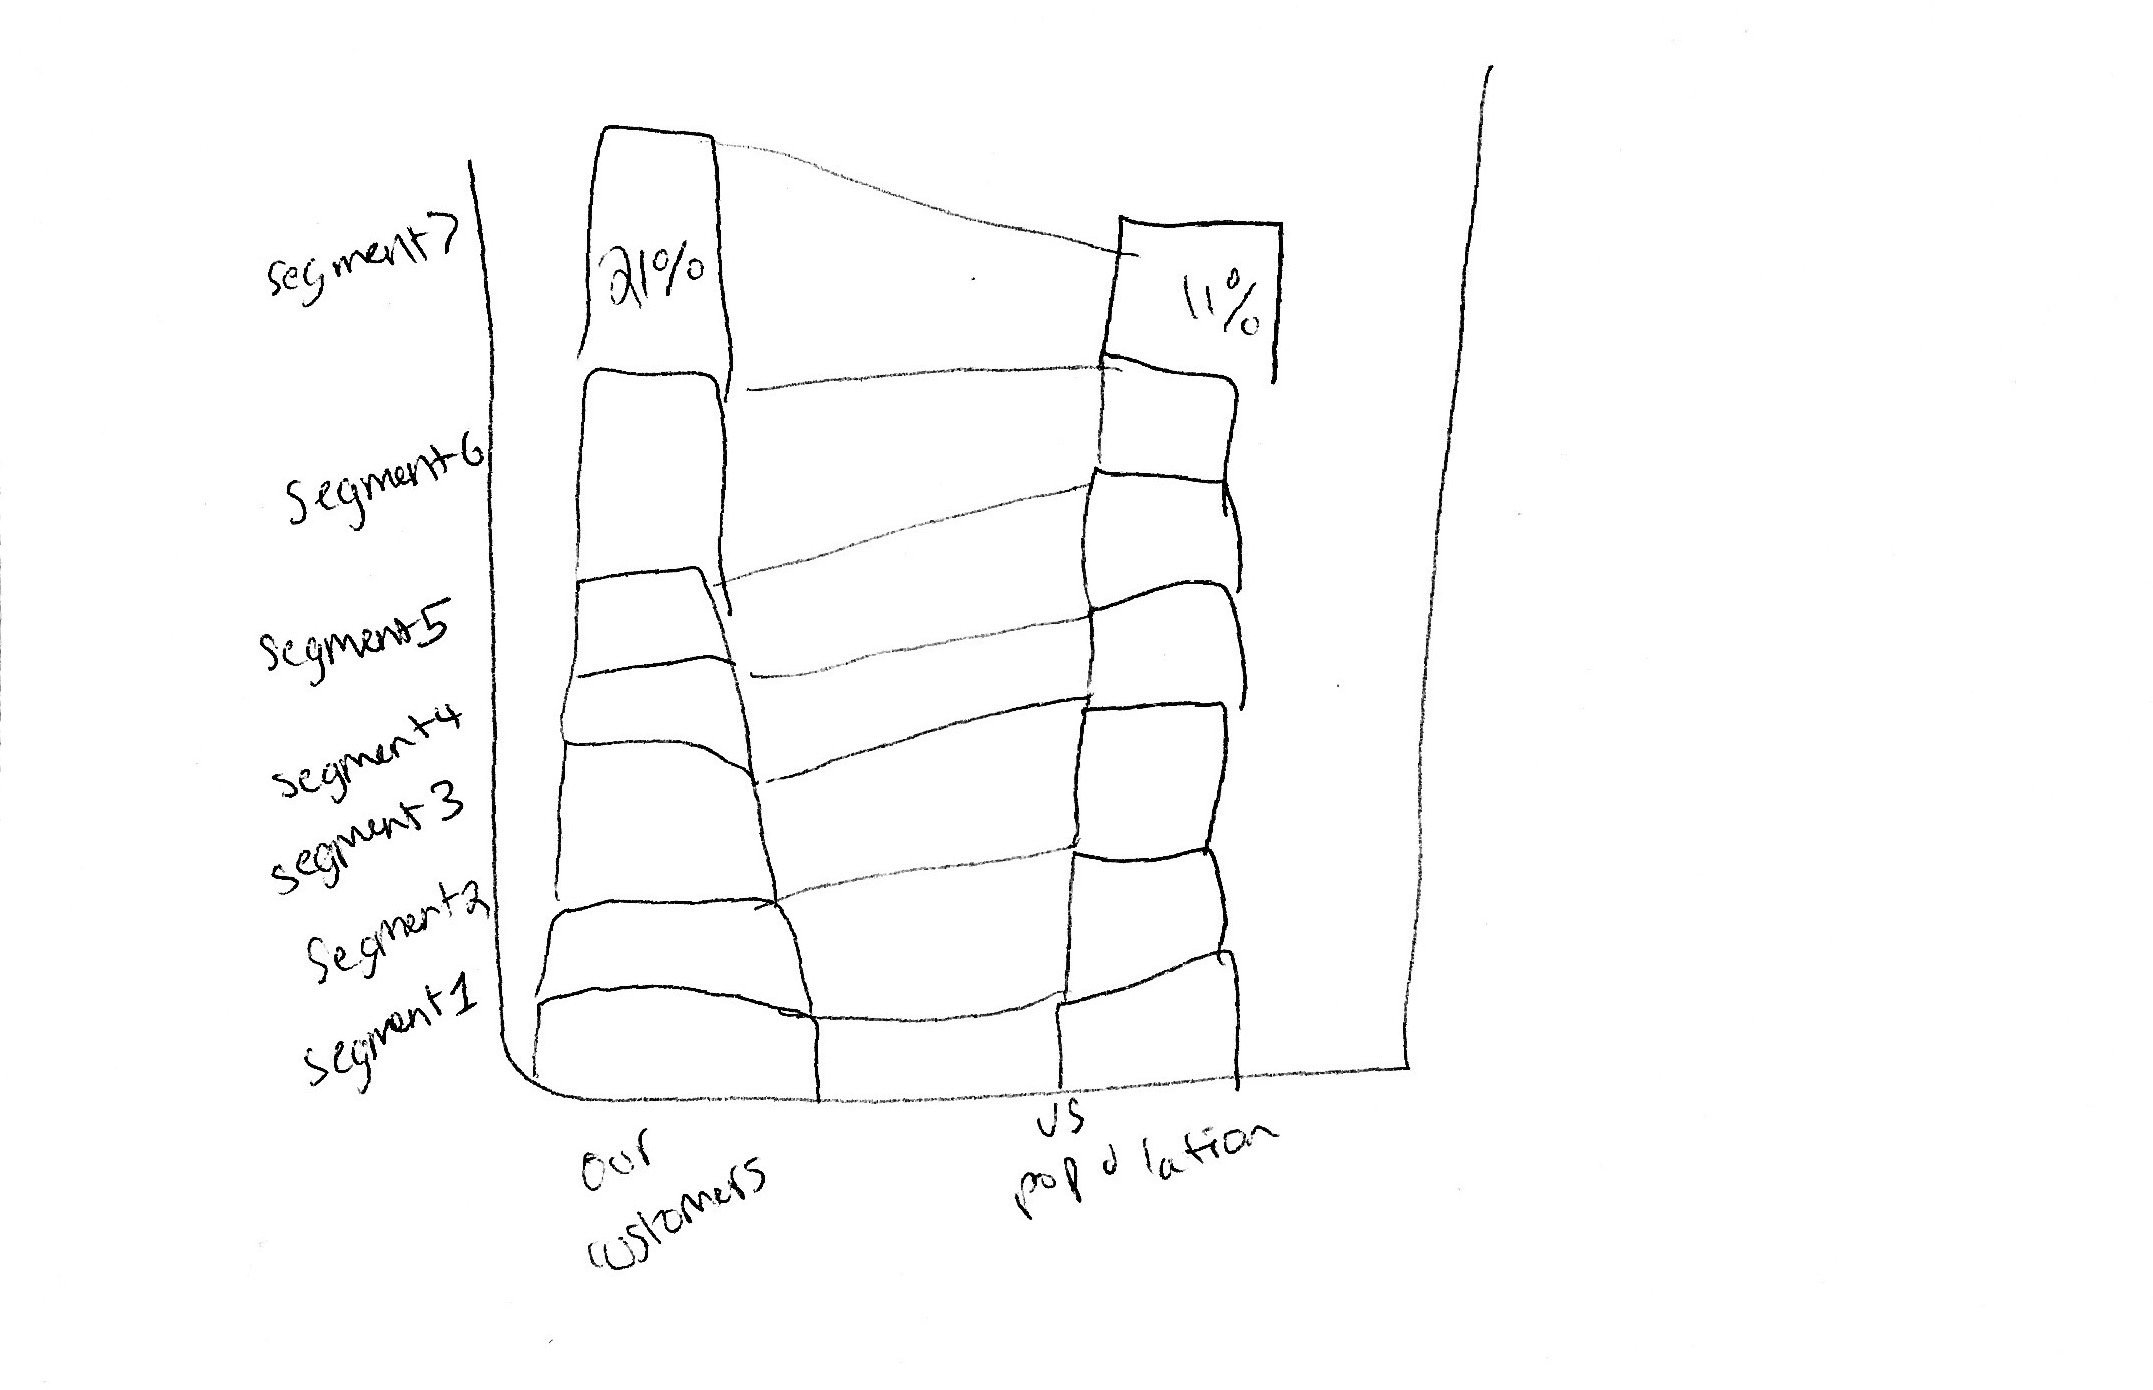 segment7
21%
11%
segment6
segment5
segment4
segment3
segment2
segment1
our
customers
US
population